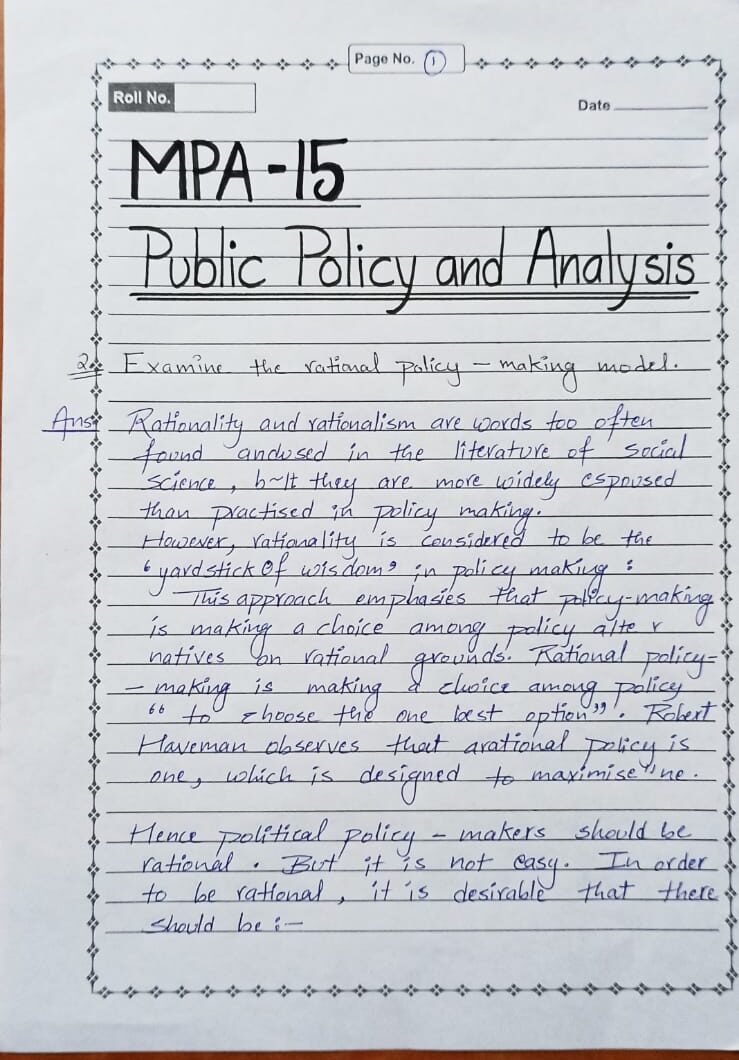 Page No. 1
Roll No.
Date
MPA-15
Public Policy and Analysis
2. Examine the rational policy - making model.
Ans Rationality and rationalism are words too often
found andused in the literature of social
science, b~lt they are more widely espoused
than practised in policy making.
However, rationality is considered to be the
'yardstick Of wisdom' in policy making :
This approach emphasies that policy-making
is making a choice among policy alte r
natives on rational grounds. Rational policy-
- making is making a choice among policy
"to choose the one best option". Robert
Haveman observes that arational policy is
one, which is designed to maximise "ne.
Hence political policy - makers should be
rational. But it is not easy. In order
to be rational, it is desirable that there
should be :-